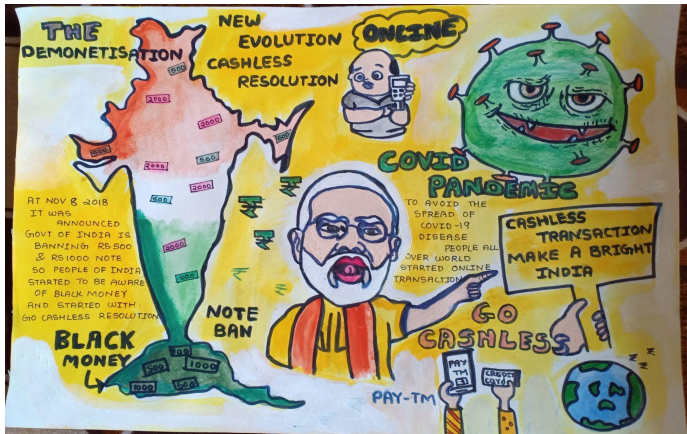 THE
DEMONETISATION
NEW
EVOLUTION
CASHLESS
RESOLUTION
ONLINE
500
2000
2000
500
500
500
2000
2000
500
2000
500
COVID
PANDEMIC
AT NOV 8 2018
IT WAS
ANNOUNCED
GOVT OF INDIA IS
BANNING RS 500
& RS 1000 NOTE
SO PEOPLE OF INDIA
STARTED TO BE AWARE
OF BLACK MONEY
AND STARTED WITH
GO CASHLESS RESOLUTION
₹
₹
₹
₹
₹
TO AVOID THE
SPREAD OF
COVID-19
DISEASE
PEOPLE ALL
OVER WORLD
STARTED ONLINE
TRANSACTION
CASHLESS
TRANSACTION
MAKE A BRIGHT
INDIA
NOTE
BAN
GO
CASHLESS
BLACK
MONEY
500
1000
1000
500
PAY-TM
PAY
TM
CREDIT
CARD
₹
₹
₹